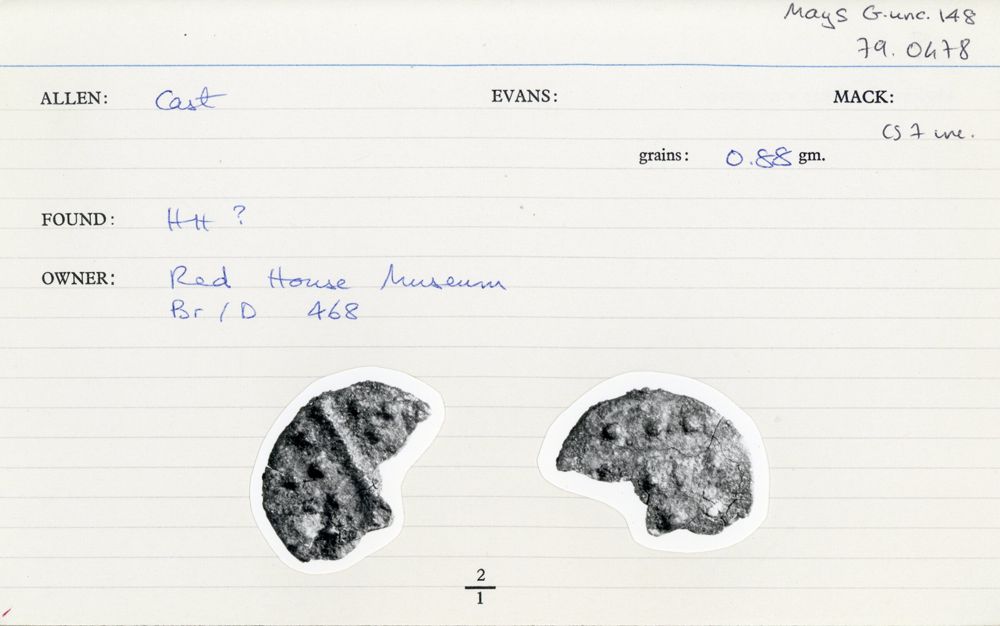 Mays G.unc. 148
79. 0478
ALLEN: Cast EVANS: MACK:
CS 7 unc.
grains: 0.88 gm.
FOUND: HH ?
OWNER: Red House Museum
Br / D 468
2
1